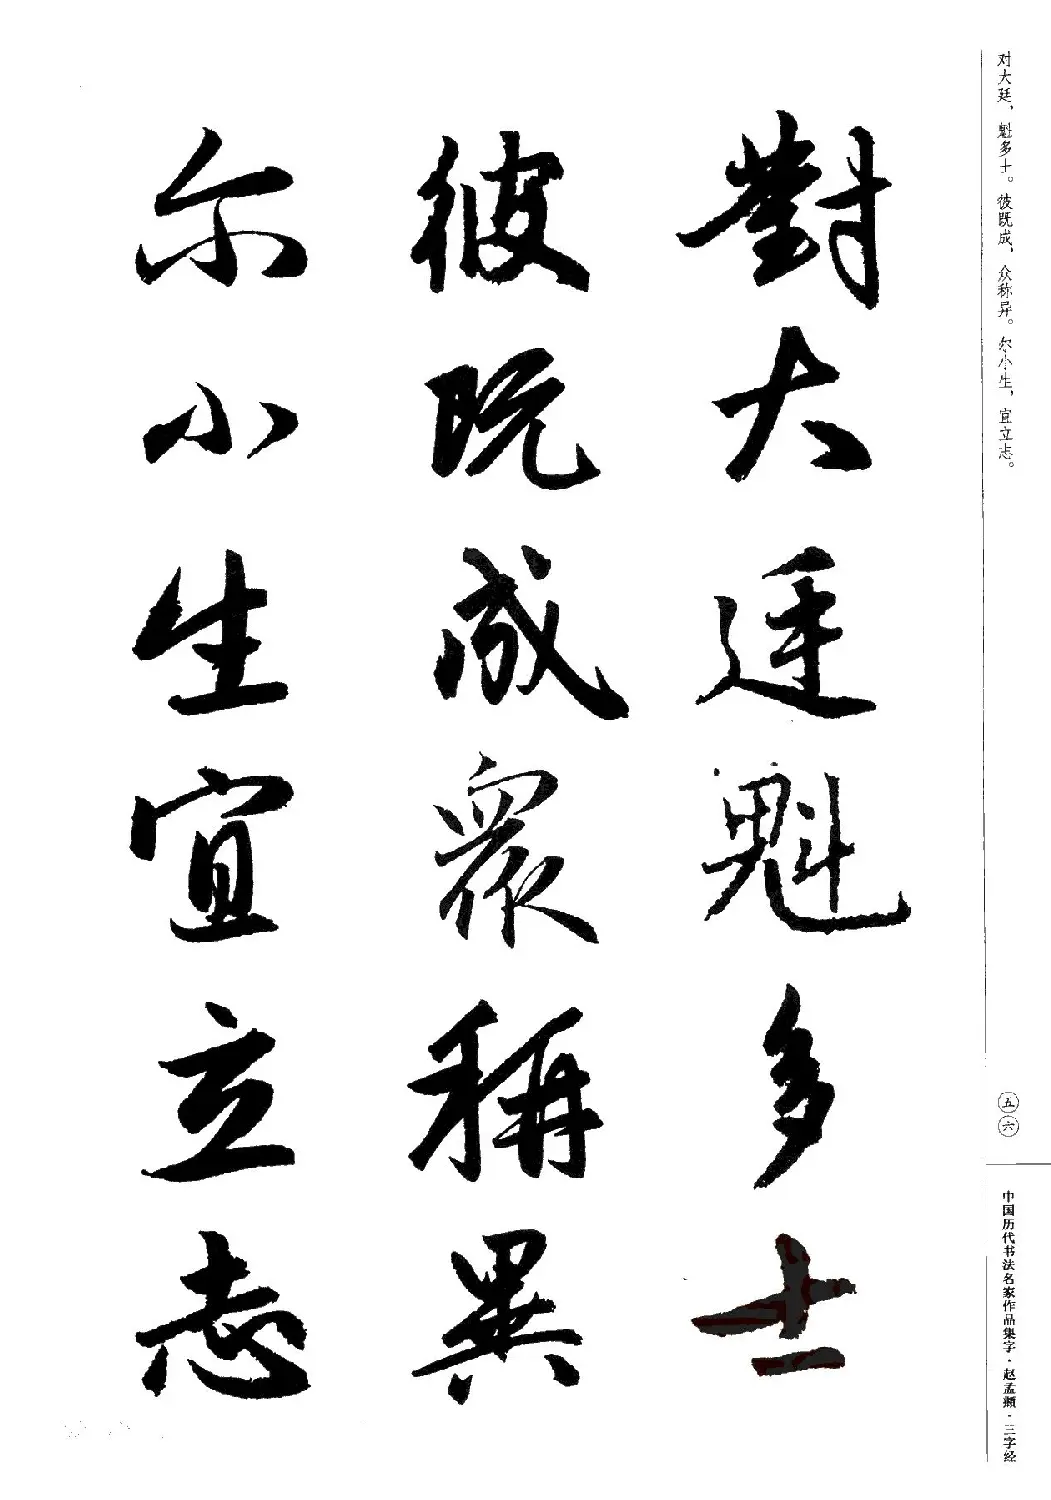 对大廷，魁多士。彼既成，众称异。尔小生，宜立志。
對大廷魁多士
彼既成眾稱異
尔小生宜立志
五六
中国历代书法名家作品集字·赵孟頫·三字经